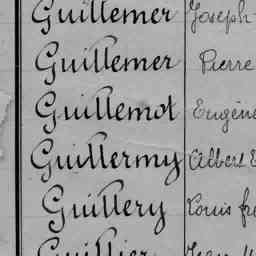 Guillemer Joseph
Guillemer Pierre
Guillemot Eugène
Guillermy Albert E
Guillery Louis fr
Guillier Jean